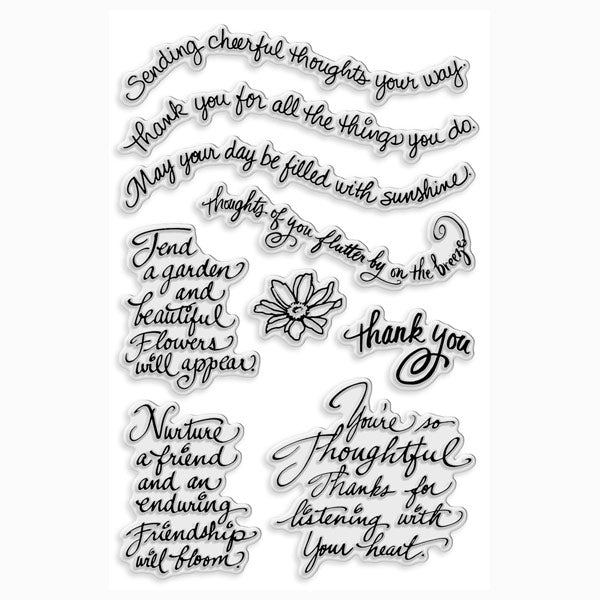 Sending cheerful thoughts your way.
thank you for all the things you do.
May your day be filled with sunshine.
thoughts of you flutter by on the breeze
Tend
a garden
and
beautiful
Flowers
will appear.
thank you
Nurture
a friend
and an
enduring
Friendship
will bloom.
You're so
Thoughtful
Thanks for
listening with
Your heart.